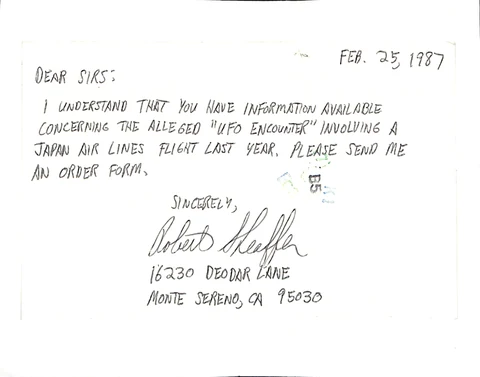 FEB. 25, 1987
DEAR SIRS:
I UNDERSTAND THAT YOU HAVE INFORMATION AVAILABLE
CONCERNING THE ALLEGED "UFO ENCOUNTER" INVOLVING A
JAPAN AIR LINES FLIGHT LAST YEAR. PLEASE SEND ME
AN ORDER FORM.
B5
SINCERELY,
Robert Sheaffer
16230 DEODAR LANE
MONTE SERENO, CA 95030